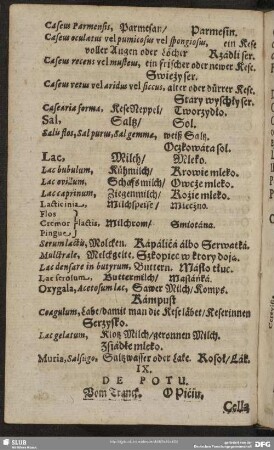 Caseus Parmensis, Parmesan/ Parmesin.
Caseus oculatus vel pumicosus vel spongiosus, ein Kese
voller Augen oder Löcher Rzádli ser.
Caseus recens vel musteus, ein frischer oder newer Kese.
Swieży ser.
Caseus vetus vel aridus vel siccus, alter oder dürrer Kese.
Stary wyschły ser.
Casearia forma, Kese Neppel/ Tworzydło.
Sal, Saltz/ Sol.
Salis flos, Sal purus, Sal gemma, weiß Saltz.
Oczkowáta sol.
Lac, Milch/ Mleko.
Lac bubulum, Kühmilch/ Krowie mleko.
Lac ovillum, Schaffs milch/ Owcze mleko.
Lac caprinum, Ziegenmilch/ Kozie mleko.
Lacticinia, Milchspeise/ Mleczno.
Flos
Cremor lactis, Milchrom/ Smiotána.
Pingue
Serum lactis, Molcken. Kápáłicá álbo Serwatká.
Mulctrale, Melckgelte. Szkopiec w ktory doją.
Lac densare in butyrum, Buttern. Másło tłuc.
Lac serosum, Buttermilch/ Máślánká.
Oxygala, Acetosum lac, Sawer Milch/ Komps.
Kámpust
Coagulum, Labe/ damit man die Kese läbet/ Keserinnen
Serzysko.
Lac gelatum, Klotz Milch/ geronnen Milch.
Zsiádłe mleko.
Muria, Salsugo, Saltzwasser oder Lake. Rosoł/ Lák.
IX.
DE POTU.
Vom Tranck. O Piciu.